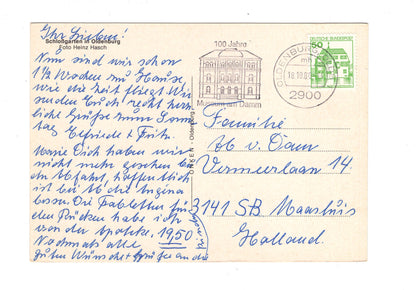 Ihr Lieben!
Schloßgarten in Oldenburg
Foto Heinz Hasch
Nun sind wir schon
1½ Wochen zu Hause
wie die Zeit fliegt Wir
senden Euch recht herz
liche Grüße zum Sonn
tag Elfriede + Fritz.
Marie Dich haben wir
nicht mehr gesehen bei
der Abfahrt, hoffentlich
ist bei die Angina
besser. Die Tabletten für
den Rücken habe ich
von der Apotheke. 19,50
Nochmals alle
guten Wünsche + Grüße an die
Kinder
100 Jahre
Museum am Damm
OLDENBURG
mh
18.10.8
2900
50
DEUTSCHE BUNDESPOST
Oldenburg
Familie
van Dam
Vermeerlaan 14
3141 SB Maasluis
Holland.